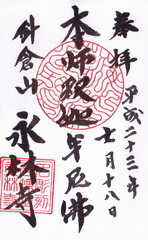 奉拝
平成二十三年
七月十八日
本師釈迦牟尼佛
針倉山
永林寺